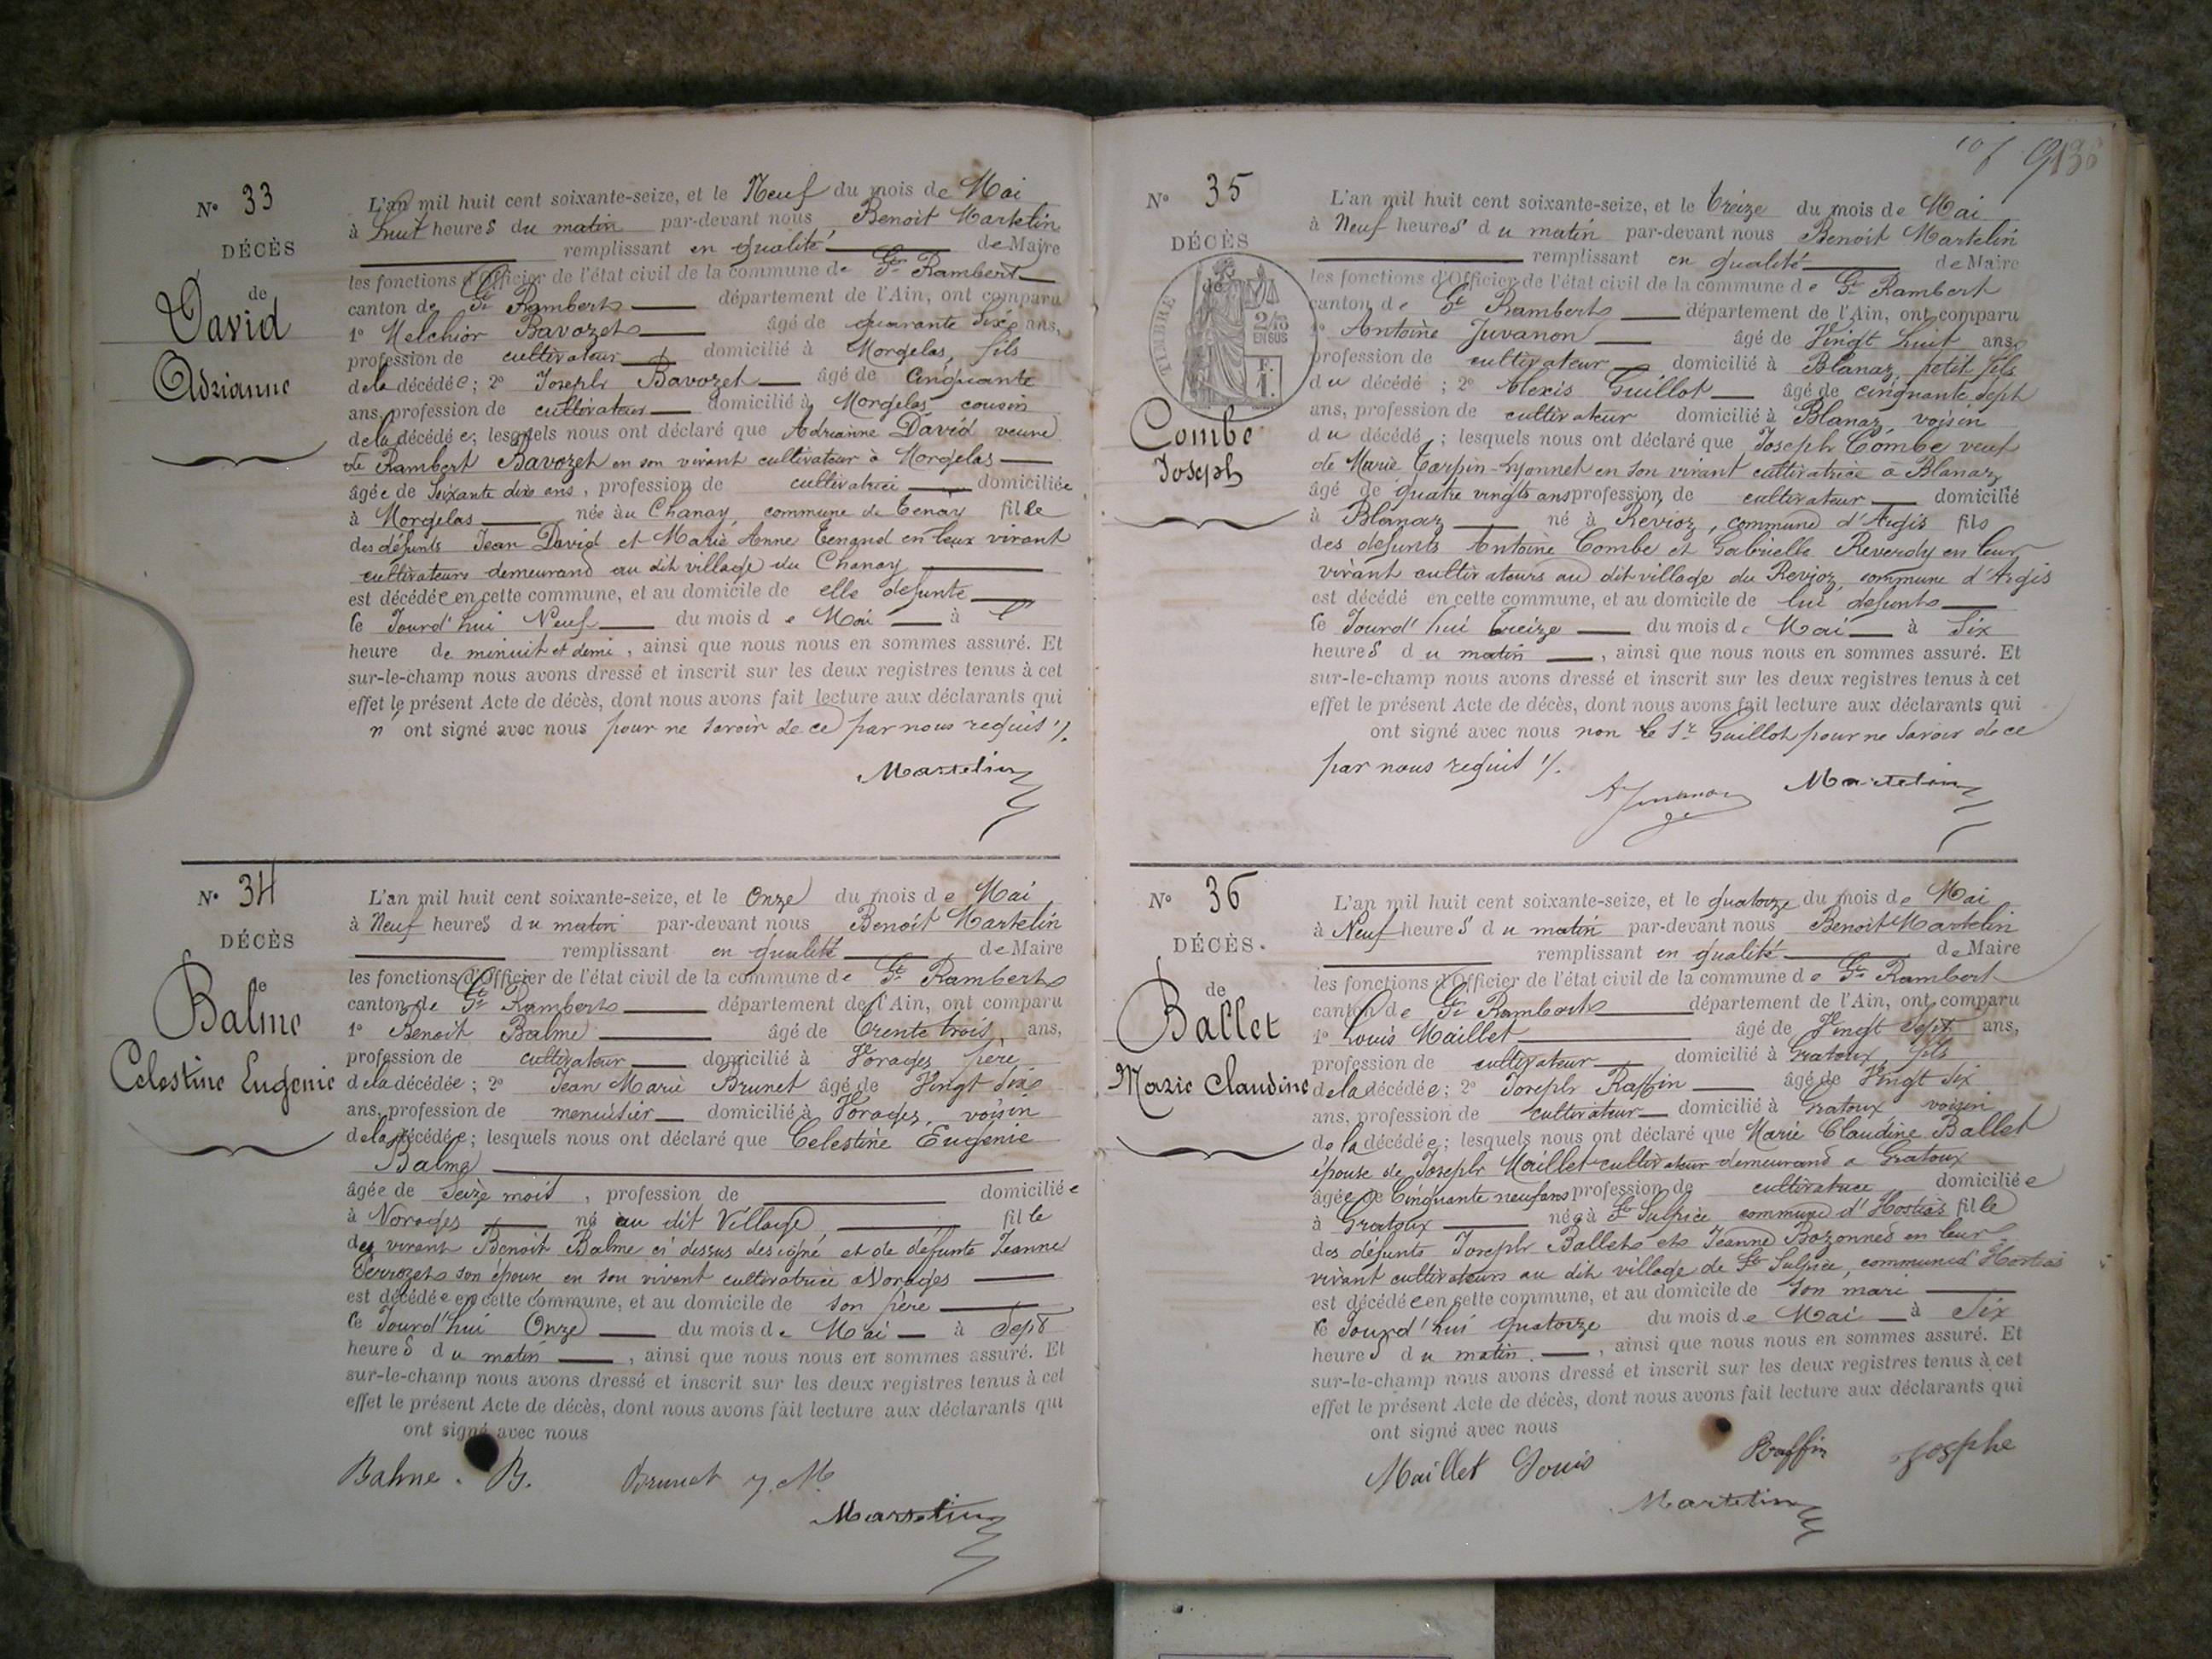 N° 33
DÉCÈS
de
David
Adrianne
L'an mil huit cent soixante-seize, et le Neuf du mois de Mai
à huit heures du matin par-devant nous Benoit Martelin
remplissant en qualité de Maire
les fonctions d'Officier de l'état civil de la commune de St Rambert
canton de St Rambert département de l'Ain, ont comparu
1° Melchior Bavozet âgé de quarante six ans,
profession de cultivateur domicilié à Morgelas, fils
de la décédée; 2° Joseph Bavozet âgé de Cinquante
ans, profession de cultivateur domicilié à Morgelas cousin
de la décédée; lesquels nous ont déclaré que Adrianne David veuve
de Rambert Bavozet en son vivant cultivateur à Morgelas
âgée de Soixante dix ans, profession de cultivatrice domiciliée
à Morgelas née au Chanay commune de Tenay fille
des défunts Jean David et Marie Anne Tenand en leur vivant
cultivateurs demeurand au dit village du Chanay
est décédée en cette commune, et au domicile de elle defunte
le Jourd'hui Neuf du mois de Mai à l'
heure de minuit et demi, ainsi que nous nous en sommes assuré. Et
sur-le-champ nous avons dressé et inscrit sur les deux registres tenus à cet
effet le présent Acte de décès, dont nous avons fait lecture aux déclarants qui
n'ont signé avec nous pour ne savoir de ce par nous requis ./.
Martelin
N° 34
DÉCÈS
de
Balme
Celestine Eugenie
L'an mil huit cent soixante-seize, et le Onze du mois de Mai
à Neuf heures du matin par-devant nous Benoit Martelin
remplissant en qualité de Maire
les fonctions d'Officier de l'état civil de la commune de St Rambert
canton de St Rambert département de l'Ain, ont comparu
1° Benoit Balme âgé de Trente trois ans,
profession de cultivateur domicilié à Vorages père
de la décédée; 2° Jean Marie Brunet âgé de Vingt six
ans, profession de menuisier domicilié à Vorages, voisin
de la décédée; lesquels nous ont déclaré que Celestine Eugenie
Balme
âgée de Seize mois, profession de domiciliée
à Vorages né au dit Village fille
des vivant Benoit Balme ci dessus designé et de défunte Jeanne
Perrozet son épouse en son vivant cultivatrice à Vorages
est décédée en cette commune, et au domicile de son père
le Jourd'hui Onze du mois de Mai à Sept
heures du matin, ainsi que nous nous en sommes assuré. Et
sur-le-champ nous avons dressé et inscrit sur les deux registres tenus à cet
effet le présent Acte de décès, dont nous avons fait lecture aux déclarants qui
ont signé avec nous
Balme . B. Brunet J. M.
Martelin
N° 35
DÉCÈS
de
TIMBRE
2/10
EN SUS
F.
1.
Combe
Joseph
L'an mil huit cent soixante-seize, et le treize du mois de Mai
à Neuf heures du matin par-devant nous Benoit Martelin
remplissant en qualité de Maire
les fonctions d'Officier de l'état civil de la commune de St Rambert
canton de St Rambert département de l'Ain, ont comparu
1° Antoine Juvanon âgé de Vingt huit ans,
profession de cultivateur domicilié à Blanaz, petit fils
du décédé; 2° Alexis Guillot âgé de cinquante sept
ans, profession de cultivateur domicilié à Blanaz, voisin
du décédé; lesquels nous ont déclaré que Joseph Combe veuf
de Marie Tarpin-Lyonnet en son vivant cultivatrice à Blanaz
âgé de quatre vingts ans profession de cultivateur domicilié
à Blanaz né à Revioz, commune d'Argis fils
des defunts Antoine Combe et Gabrielle Reverdy en leur
vivant cultivateurs au dit village du Revioz commune d'Argis
est décédé en cette commune, et au domicile de lui defunt
le Jourd'hui treize du mois de Mai à Six
heures du matin, ainsi que nous nous en sommes assuré. Et
sur-le-champ nous avons dressé et inscrit sur les deux registres tenus à cet
effet le présent Acte de décès, dont nous avons fait lecture aux déclarants qui
ont signé avec nous non le Sr Guillot pour ne savoir de ce
par nous requis ./.
A Juvanon Martelin
N° 36
DÉCÈS.
de
Ballet
Marie Claudine
L'an mil huit cent soixante-seize, et le quatorze du mois de Mai
à Neuf heures du matin par-devant nous Benoit Martelin
remplissant en qualité de Maire
les fonctions d'Officier de l'état civil de la commune de St Rambert
canton de St Rambert département de l'Ain, ont comparu
1° Louis Maillet âgé de Vingt sept ans,
profession de cultivateur domicilié à Gratoux, fils
de la décédée; 2° Joseph Raffin âgé de Vingt six
ans, profession de cultivateur domicilié à Gratoux, voisin
de la décédée; lesquels nous ont déclaré que Marie Claudine Ballet
épouse de Joseph Maillet cultivateur demeurand à Gratoux
âgée de Cinquante neuf ans profession de cultivatrice domiciliée
à Gratoux née à St Sulpice commune d'Hostias fille
des défunts Joseph Ballet et Jeanne Bozonned en leur
vivant cultivateurs au dit village de St Sulpice, commune d'Hostias
est décédée en cette commune, et au domicile de Son mari
le Jourd'hui quatorze du mois de Mai à Six
heures du matin, ainsi que nous nous en sommes assuré. Et
sur-le-champ nous avons dressé et inscrit sur les deux registres tenus à cet
effet le présent Acte de décès, dont nous avons fait lecture aux déclarants qui
ont signé avec nous
Maillet Louis Raffin Josephe
Martelin